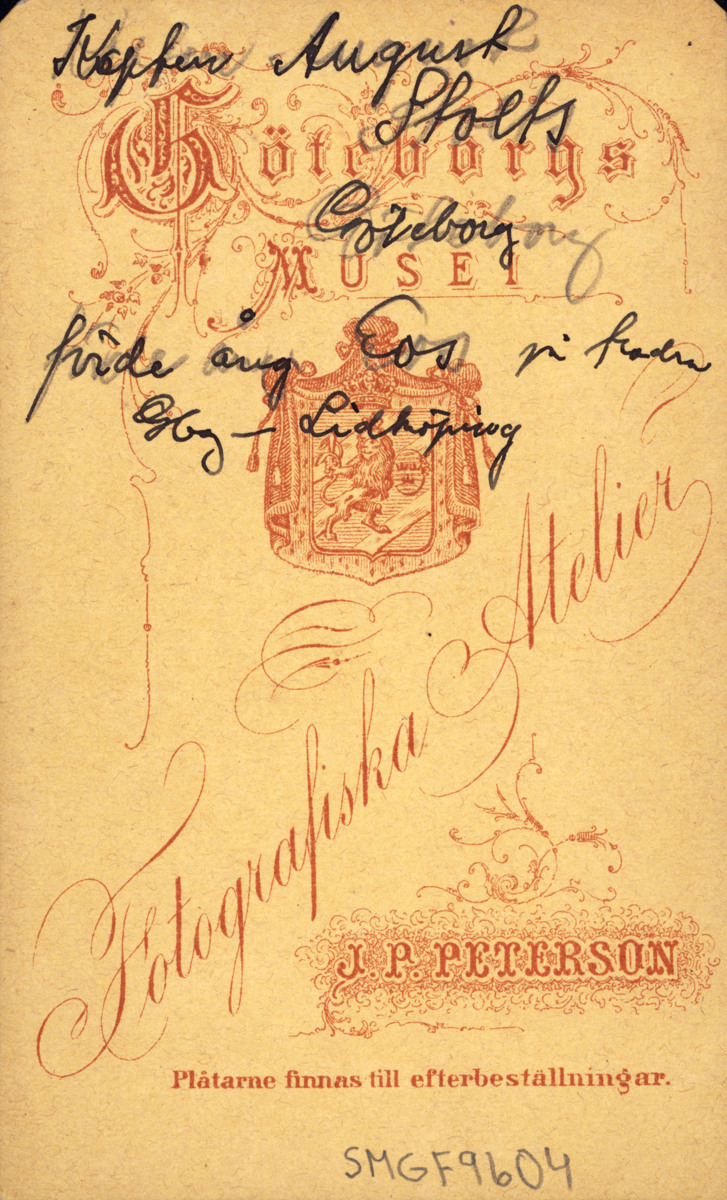 Kapten August
Stolts
Göteborgs
Göteborg
MUSEI
förde ång Eos på traden
Gbg – Lidköping
Fotografiska Atelier
J. P. PETERSON
Plåtarne finnas till efterbeställningar.
SMGF9604